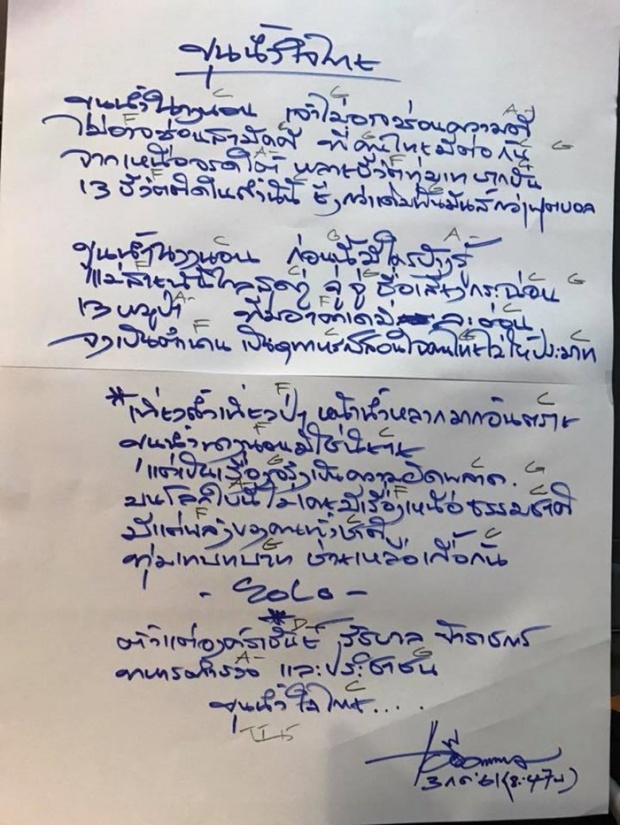 ขุนน้ำใจไทย
ขุนน้ำนางนอน เจ้าไม่อาจซ่อนความดี
ไม่อาจซ่อนสามัคคี ที่คนไทยมีต่อกัน
จากเหนือจรดใต้ พลาชีวิตทุ่มเท บากบั่น
13 ชีวิตติดในถ้ำนี้ ยิ่งกว่ามันส์กว่าฟุตบอล
ขุนน้ำนางนอน ก่อนนี้มีใครบ้างรู้
แม่สายนี้ไกลสุดกู่ จู่ จู่ ชื่อเสียงกระฉ่อน
13 หมูป่า ทีมอาคาเดมี่ ละอ่อน
จงเป็นตำนาน เป็นอุทาหรณ์สอนใจคนไทยไม่ให้ประมาท
*เที่ยวถ้ำเที่ยวป่า หน้าน้ำหลากมากอันตราย
ขุนน้ำนางนอนมิใช่นิยาย
แต่เป็นเรื่องจริงเป็นความผิดพลาด
บนโลกใบนี้ ไม่เคยมีเรื่องเหนือธรรมชาติ
มีแต่พลังของคนทั้งชาติ
ทุ่มเทบทบาท ช่วยเหลือเกื้อกัน
- SOLO -
*
ตั้งแต่องค์ราชันย์ รัฐบาล ข้าราชการ
ทหารตำรวจ และประชาชน
ขุนน้ำใจไทย....
3 ก.ค. 61 (8:47น)